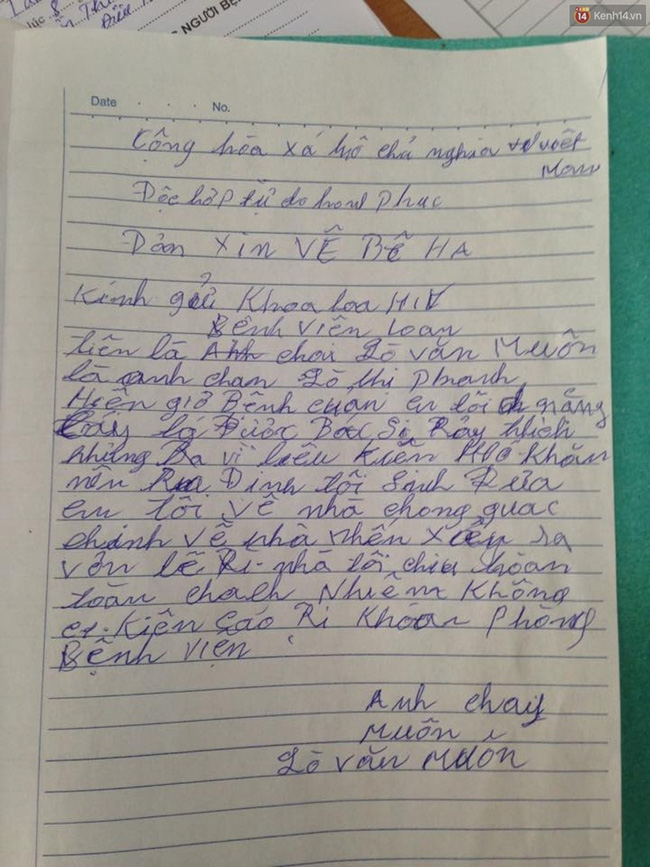 14 Kenh14.vn
NGƯỜI BỆ
Date . . . No.
Cộng hòa xá hộ chủ nghĩa việt
Mam
Độc hớp tự do hanh Phuc
Dản XIN VỄ BỄ HA
Kinh gửi Khoa loa HIV
Bệnh viện loan
tiên là Anh chai Lò văn Muôn
là anh chan Lò thi Phanh
Hiên giờ Bệnh cuan en tôi nặng
Được Bac Si Rảy thich
nhưng Ba vì liêu Kiên Khăn
nên Đinh tôi Sinh Đưa
em tôi vễ nhà chong quac
chinh vễ nhà nhên xảy ra
vôn lễ Ri nhà tôi chiu hoan
toàn chach Nhiêm Không
Kiên Cáo Ri Khoan Phòng
Bệnh viện
Anh chay
Muôn
Lò văn Muôn